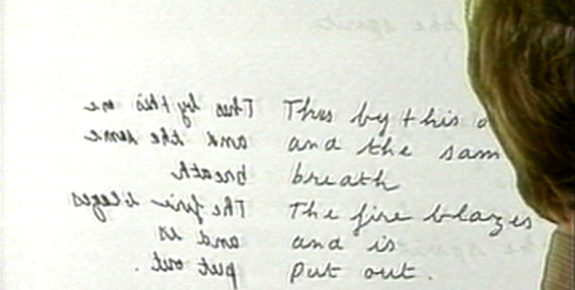 Thus by this one
and the same
breath
The fire blazes
and is
put out.
Thus by this o
and the sam
breath
The fire blazes
and is
put out.
the spirit